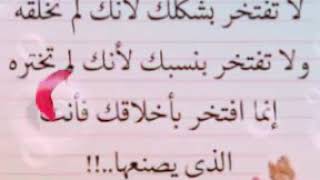 لا تفتخر بشكلك لأنك لم تخلقه
ولا تفتخر بنسبك لأنك لم تختره
إنما افتخر بأخلاقك فأنت
الذى يصنعها..!!